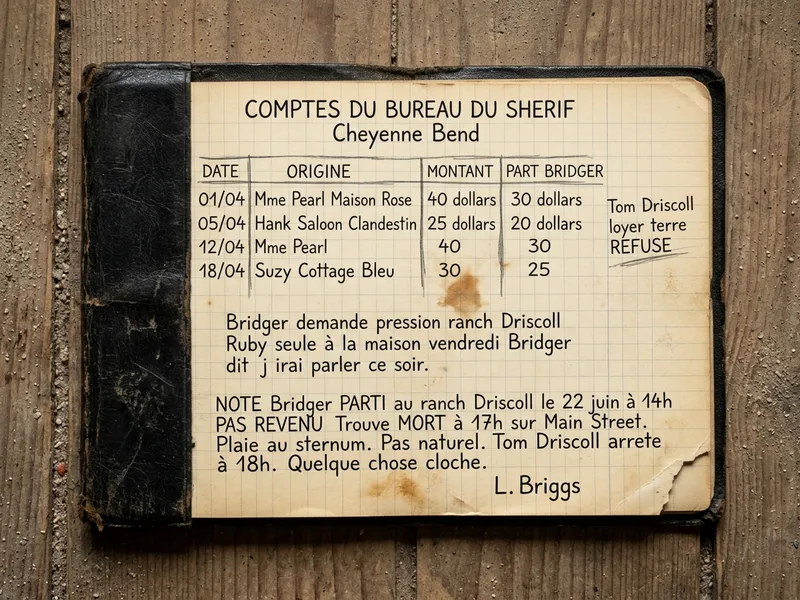 COMPTES DU BUREAU DU SHERIF
Cheyenne Bend
DATE ORIGINE MONTANT PART BRIDGER
01/04 Mme Pearl Maison Rose 40 dollars 30 dollars
05/04 Hank Saloon Clandestin 25 dollars 20 dollars
12/04 Mme Pearl 40 30
18/04 Suzy Cottage Bleu 30 25
Tom Driscoll
loyer terre
REFUSE
Bridger demande pression ranch Driscoll
Ruby seule à la maison vendredi Bridger
dit j irai parler ce soir.
NOTE Bridger PARTI au ranch Driscoll le 22 juin à 14h
PAS REVENU Trouve MORT à 17h sur Main Street.
Plaie au sternum. Pas naturel. Tom Driscoll arrete
à 18h. Quelque chose cloche.
L. Briggs